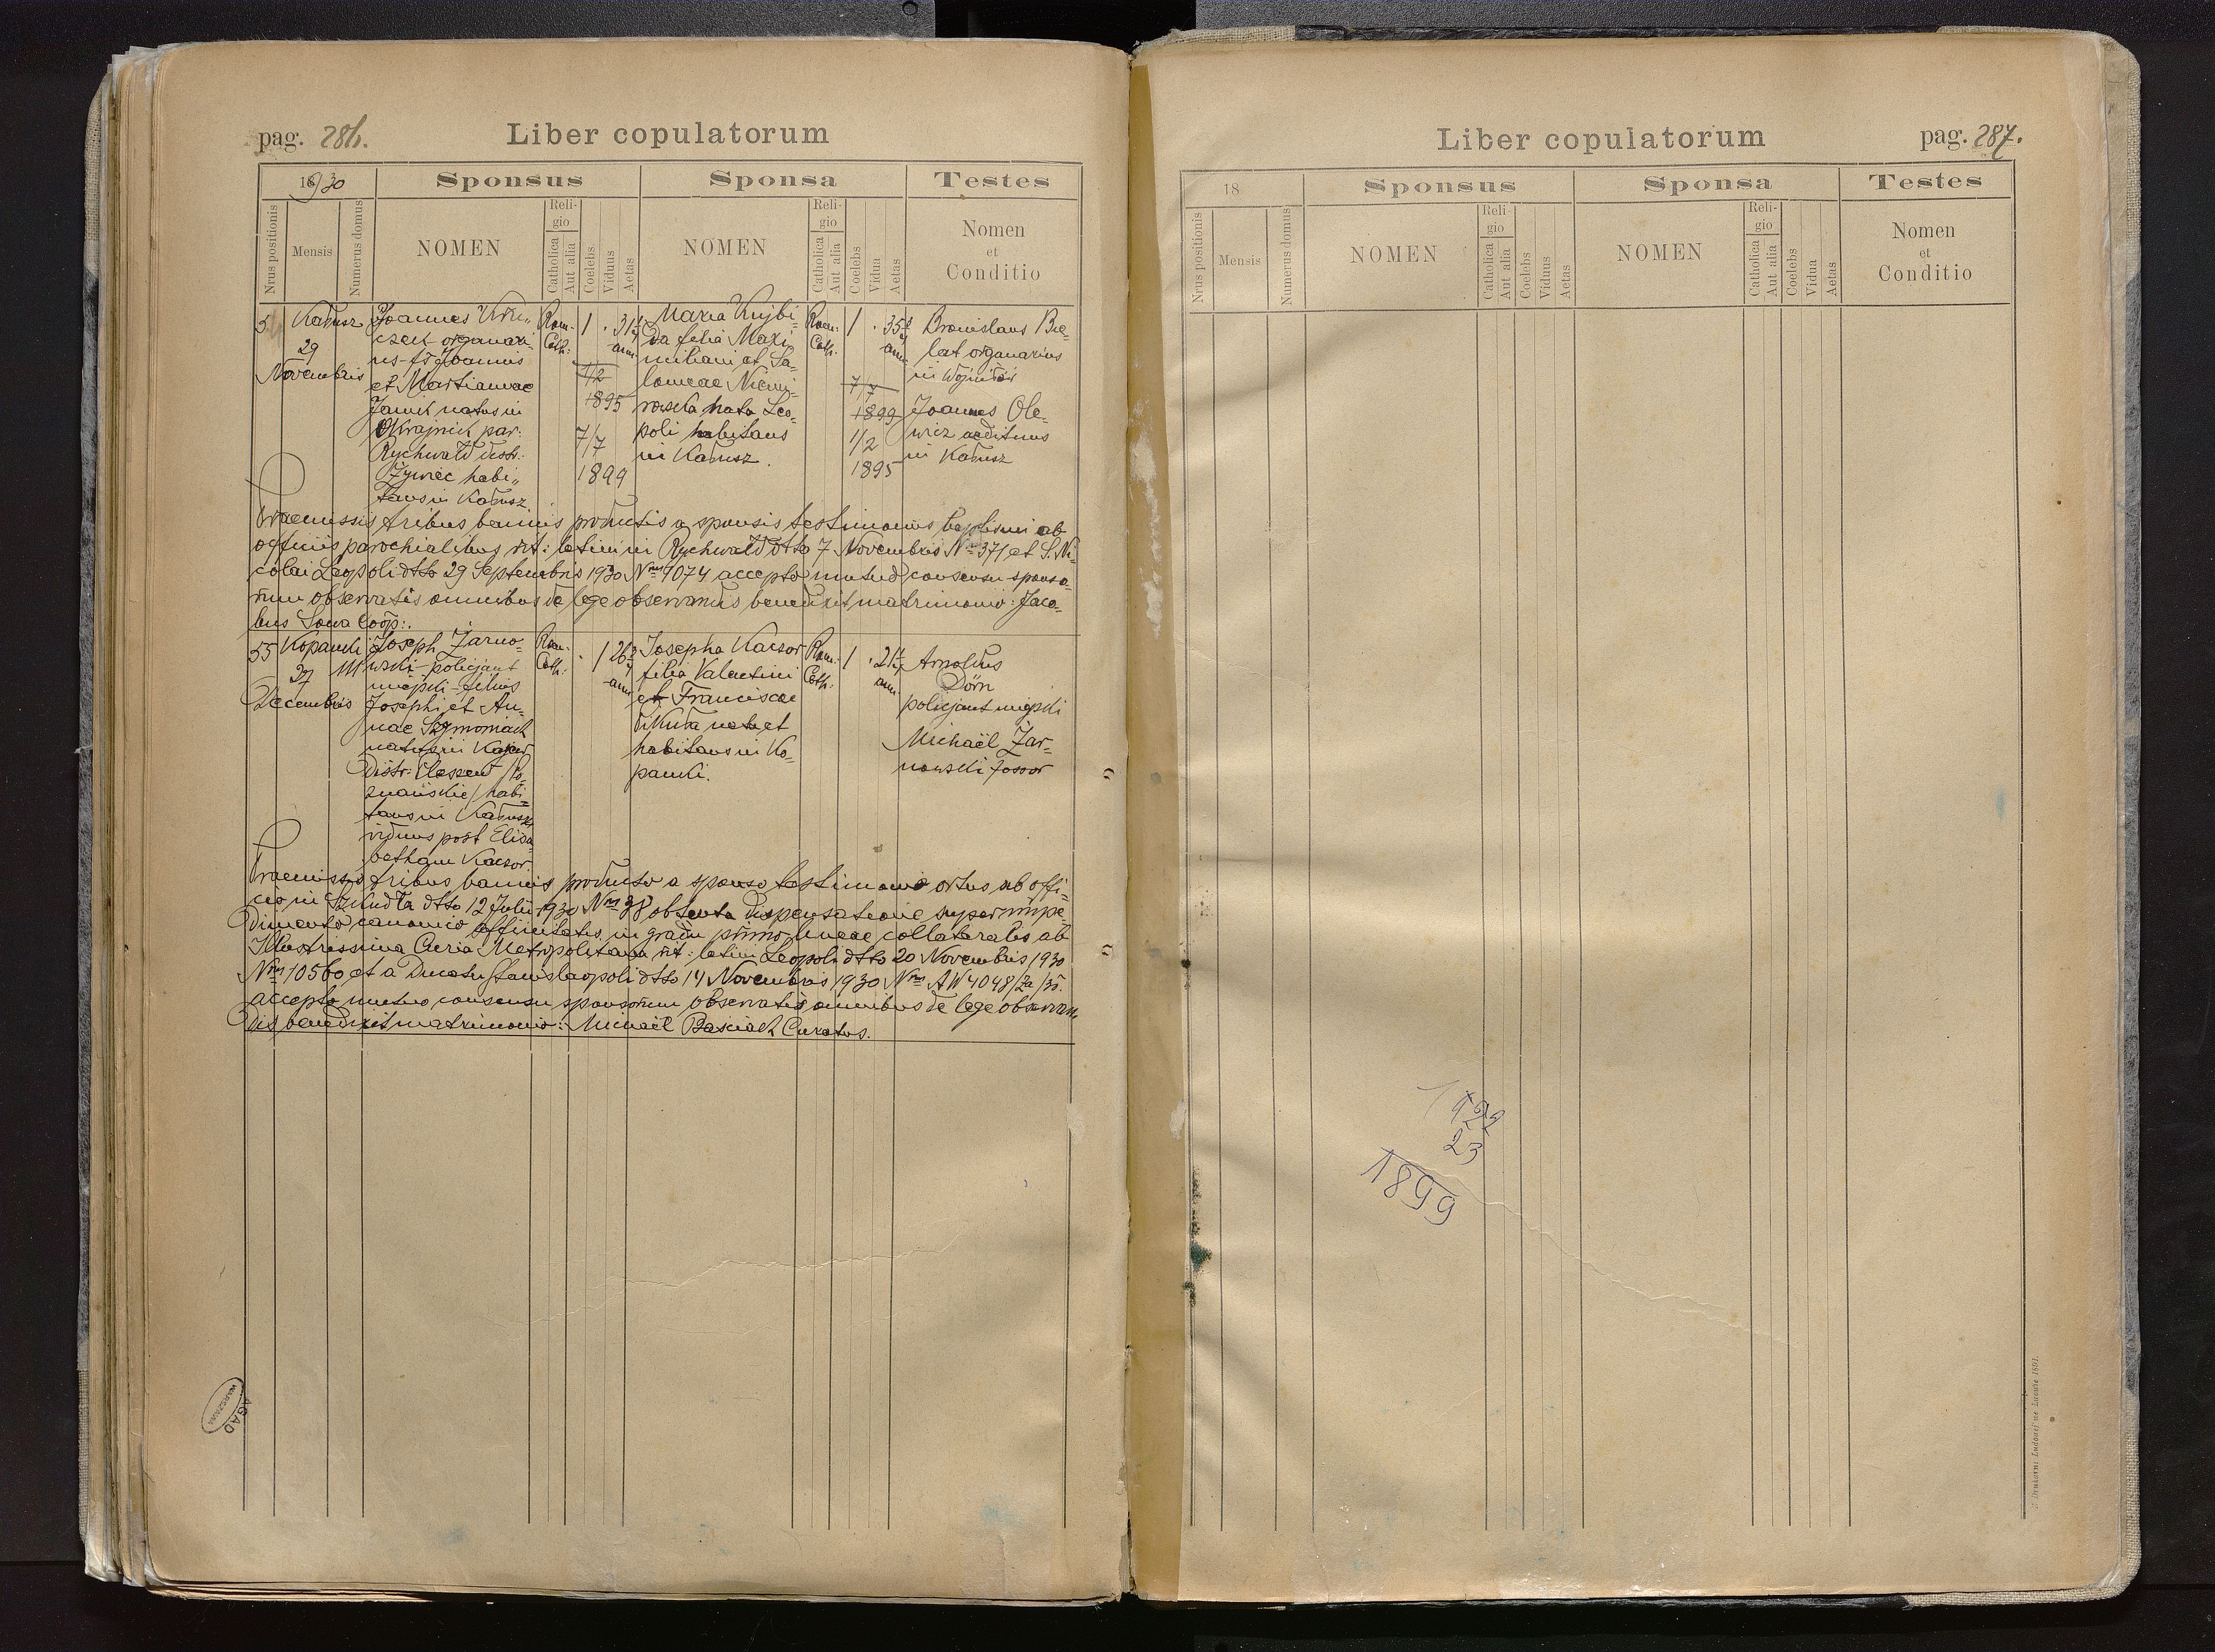 pag. 286.
Liber copulatorum
1930
Sponsus
Sponsa
Testes
Nrus positionis
Mensis
Numerus domus
NOMEN
Religio
Catholica
Aut alia
Coelebs
Viduus
Aetas
NOMEN
Religio
Catholica
Aut alia
Coelebs
Vidua
Aetas
Nomen
et
Conditio
Kałusz
29
Novembris
Joannes
czek organari
us fs Joannis
et Martiannae
Jawik natus in
Okrajnik par:
Rychwałd distr:
Żywiec habi„
tans in Kałusz
Rom:
Cath:
1
1/2
1895
7/7
1899
Maria Kujbi-
da filia Maxi
miliani et Sa-
lomeae Niemi-
rowska nata Leo-
poli habitans
in Kałusz.
Rom:
Cath:
1
7/7
1899
1/2
1895
Bronislaus Bie-
lat organarius
in Wojniłów
Joannes Ole-
wicz aedituus
in Kałusz
Praemissis tribus bannis productis a sponsis testimoniis baptismi ab
officiis parochialibus rit: latini in Rychwałd dtto 7 Novembris No 371 et S. Ni-
colai Leopoli dtto 29 Septembris 1930 Nrus 1074 accepto mutuo consensu sponso-
rum observatis omnibus de lege observandis benedixit matrimonio: Jaco-
bus Sowa Coop:.
55
Kopanki
27
Decembris
Joseph Żarno-
wski policjant
miejski filius
Josephi et An-
nae Szymoniach
natus in
Distr: Pleszew /Po-
znańskie/ habi-
tans in Kałusz
viduus post Elisa-
betham Kaczor
Rom:
Cath:
1
Josepha Kaczor
filia Valentini
et Franciscae
Wikuła nata et
habitans in Ko-
panki.
Rom:
Cath:
1
Arnoldus
Dörn
policjant miejski
Michaël Żar-
nowski fossor
Praemissis tribus bannis producto a sponso testimonio ortus ab offi-
cio in Szkudła dtto 12 Julii 1930 Nrus 38 obtenta dispensatione super impe-
dimento canonico affinitatis in gradu primo lineae collateralis ab
Illustrissima Curia Metropolitana rit: latini Leopoli dtto 20 Novembris 1930
Nrus 10560 et a Ducatu Stanislaopoli dtto 14 Novembris 1930 Nrus AW 4048/2a/30.
accepto mutuo consensu sponsorum observatis omnibus de lege observan
dis benedixit matrimonio: Michaël Baściak Curatus.
AGAD
WARSZAWA
Liber copulatorum
pag. 287.
18
Sponsus
Sponsa
Testes
Nrus positionis
Mensis
Numerus domus
NOMEN
Religio
Catholica
Aut alia
Coelebs
Viduus
Aetas
NOMEN
Religio
Catholica
Aut alia
Coelebs
Vidua
Aetas
Nomen
et
Conditio
1922
23
1899